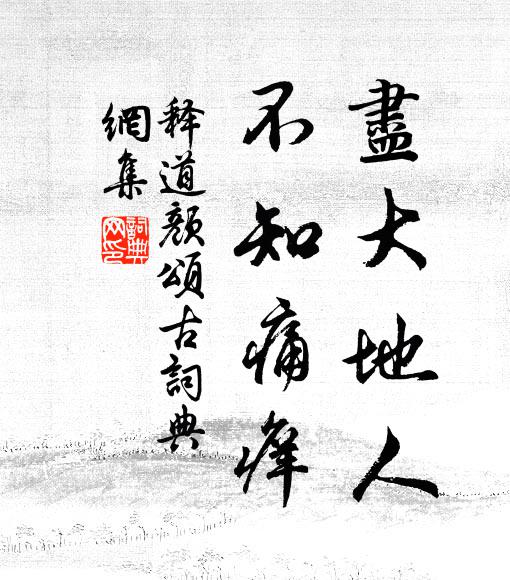 盡大地人
不知痛癢
释道颜頌古詞典
網集
詞典
网印